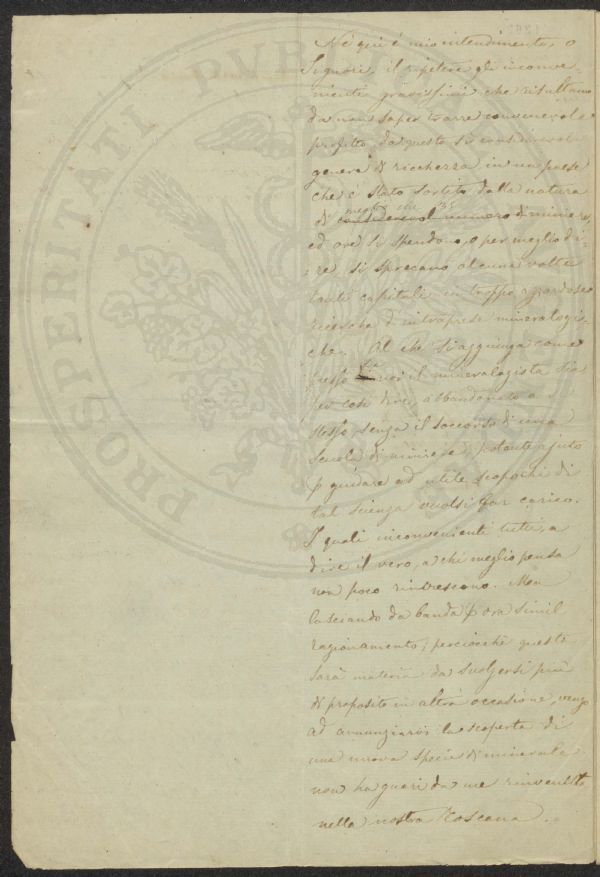 Nè qui è mio intendimento, o
Signori, il ripetere gli inconve-
nienti gravissimi che risultano
da non saper trarre convenevole
profitto da questo sì considerevole
genere di ricchezza in un paese
che è stato sortito dalla natura
meglio che 35
di considerevol numero di miniere,
ed ove si spendono, o per meglio di-
re, si sprecano alcuna volta
tanti capitali in troppo azzardose
ricerche d'intraprese mineralogi-
che. Al che si aggiunga come
spesso fra noi il mineralogista sia
per così dire, abbandonato a se
stesso, senza il soccorso di una
scuola di miniere, potente ajuto
p guidare ad utile scopo chi di
tal scienza vuolsi far carico.
I quali inconvenienti tutti, a
dire il vero, a chi meglio pensa
non poco rincrescono. Ma
lasciando da banda p ora simil
ragionamento, perciocchè questo
sarà materia da svolgersi più
di proposito in altra occasione, vengo
ad annunziarvi la scoperta di
una nuova specie di minerale
non ha guari da me rinvenuta
nella nostra Toscana.
PROSPERITATI PVBLICAE